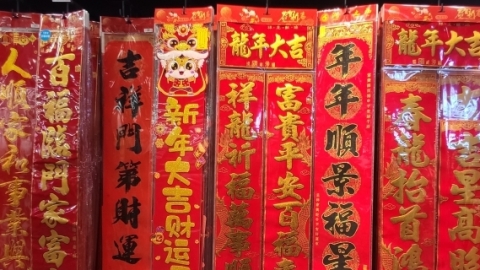 人順家和事業興
百福臨門家富
吉祥門第財運
新年大吉財運
龍年大吉
祥龍祈福
富貴平安百福
年年順景福星
龍年大吉
春龍抬首鴻
星高